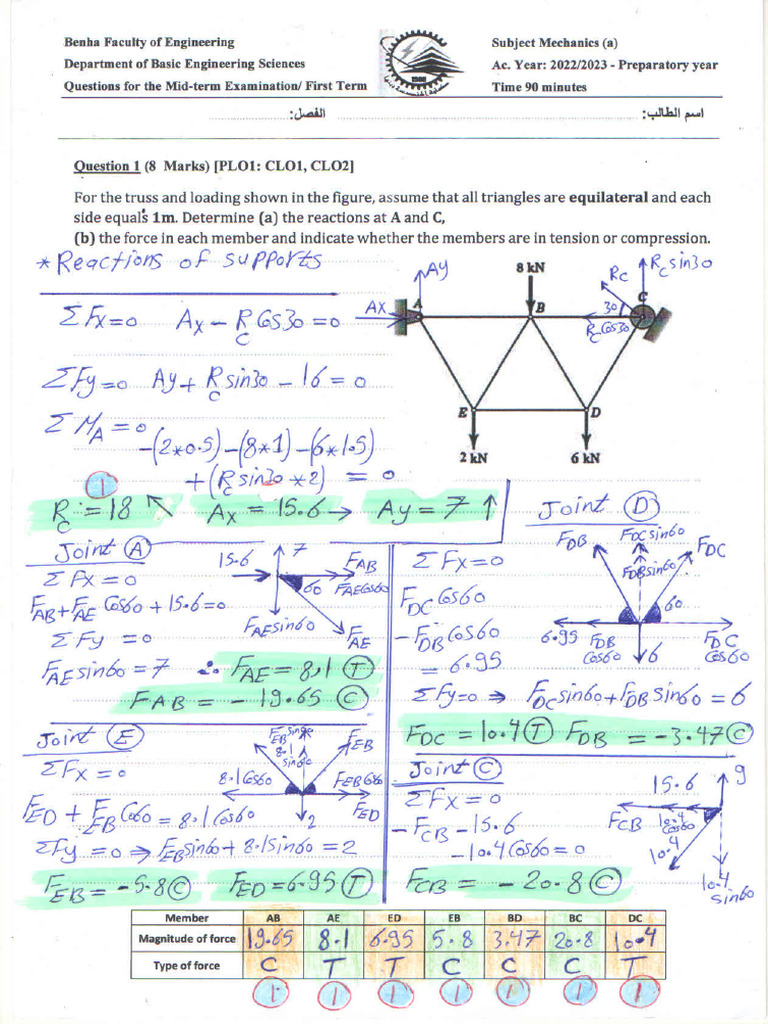 Benha Faculty of Engineering
Department of Basic Engineering Sciences
Questions for the Mid-term Examination/ First Term
Subject Mechanics (a)
Ac. Year: 2022/2023 - Preparatory year
Time 90 minutes
اسم الطالب: الفصل:
Question 1 (8 Marks) [PLO1: CLO1, CLO2]
For the truss and loading shown in the figure, assume that all triangles are equilateral and each
side equals 1m. Determine (a) the reactions at A and C,
(b) the force in each member and indicate whether the members are in tension or compression.
* Reactions of supports
ΣFx=0 Ax - Rc Cos30 = 0
ΣFy=0 Ay + Rc sin30 - 16 = 0
ΣMA = 0
-(2*0.5)-(8*1)-(6*1.5)
+(Rc sin30 *2) = 0
Ay
8 kN
Rc
Rc sin30
AX
A
B
30
C
Rc Cos30
E
D
2 kN
6 kN
1
Rc = 18 ↖ Ax = 15.6 → Ay = 7 ↑
Joint A
15.6
7
FAB
60
FAE Cos60
FAE sin60
FAE
ΣFx = 0
FAB + FAE Cos60 + 15.6 = 0
ΣFy = 0
FAE sin60 = 7 ∴ FAE = 8.1 T
FAB = - 19.65 C
Joint D
FDB
FDC sin60
FDC
FDB sin60
60
6.95
FDB Cos60
6
FDC Cos60
ΣFx = 0
FDC Cos60
- FDB Cos60
= 6.95
ΣFy = 0 ⇒ FDC sin60 + FDB sin60 = 6
FDC = 10.4 T FDB = -3.47 C
Joint E
FEB sin60
8.1 sin60
FEB
8.1 Cos60
FEB Cos60
FED
2
ΣFx = 0
FED + FEB Cos60 = 8.1 Cos60
ΣFy = 0 ⇒ FEB sin60 + 8.1 sin60 = 2
FEB = -5.8 C FED = 6.95 T
Joint C
15.6
9
FCB
10.4 Cos60
10.4
10.4 sin60
ΣFx = 0
- FCB - 15.6
- 10.4 Cos60 = 0
FCB = - 20.8 C
Member AB AE ED EB BD BC DC
Magnitude of force 19.65 8.1 6.95 5.8 3.47 20.8 10.4
Type of force C T T C C C T
1 1 1 1 1 1 1